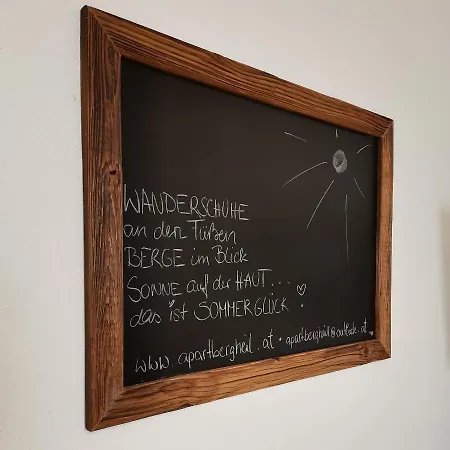 WANDERSCHUHE
an den Füßen
BERGE im Blick
SONNE auf der HAUT...
das ist SOMMERGLÜCK!
www.apartbergheil.at • apartbergheil@outlook.at